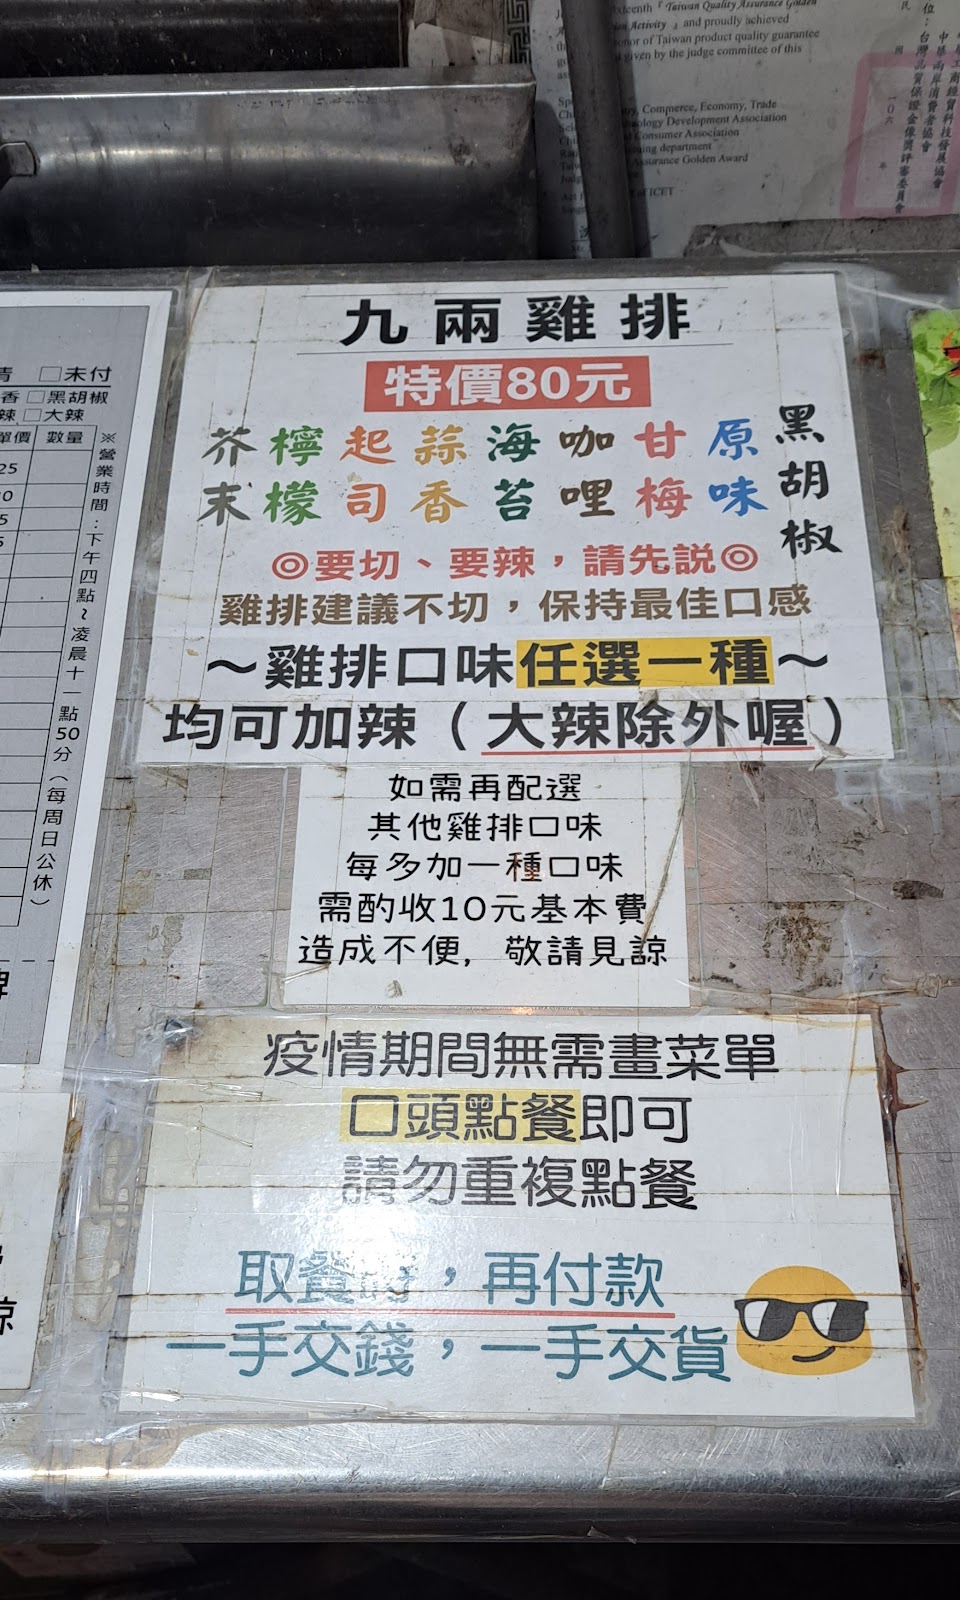 ixteenth『Taiwan Quality Assurance Golden
Activity』and proudly achieved
onor of Taiwan product quality guarantee
given by the judge committee of this
Commerce, Economy, Trade
ology Development Association
onsumer Association
department
Assurance Golden Award
ICET
台灣品質保證金像獎評審委員會
中華兩岸消費者協會
工商經貿科技發展協會
一０六
年
九兩雞排
特價80元
黑胡椒
原味
甘梅
咖哩
海苔
蒜香
起司
檸檬
芥末
◎要切、要辣，請先説◎
雞排建議不切，保持最佳口感
～雞排口味任選一種～
均可加辣（大辣除外喔）
如需再配選
其他雞排口味
每多加一種口味
需酌收10元基本費
造成不便，敬請見諒
疫情期間無需畫菜單
口頭點餐即可
請勿重複點餐
取餐時，再付款
一手交錢，一手交貨
□未付
香□黑胡椒
辣□大辣
單價 數量
25
0
5
5
※營業時間：下午四點~凌晨十一點50分（每周日公休）
諒